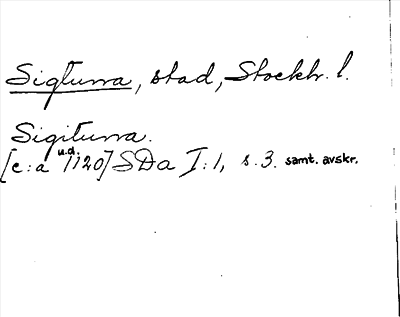 Sigtuna, stad, Stockh. l.
Sigituna.
u.d.
[c:a 1120] SDa I:1, s. 3. samt. avskr.